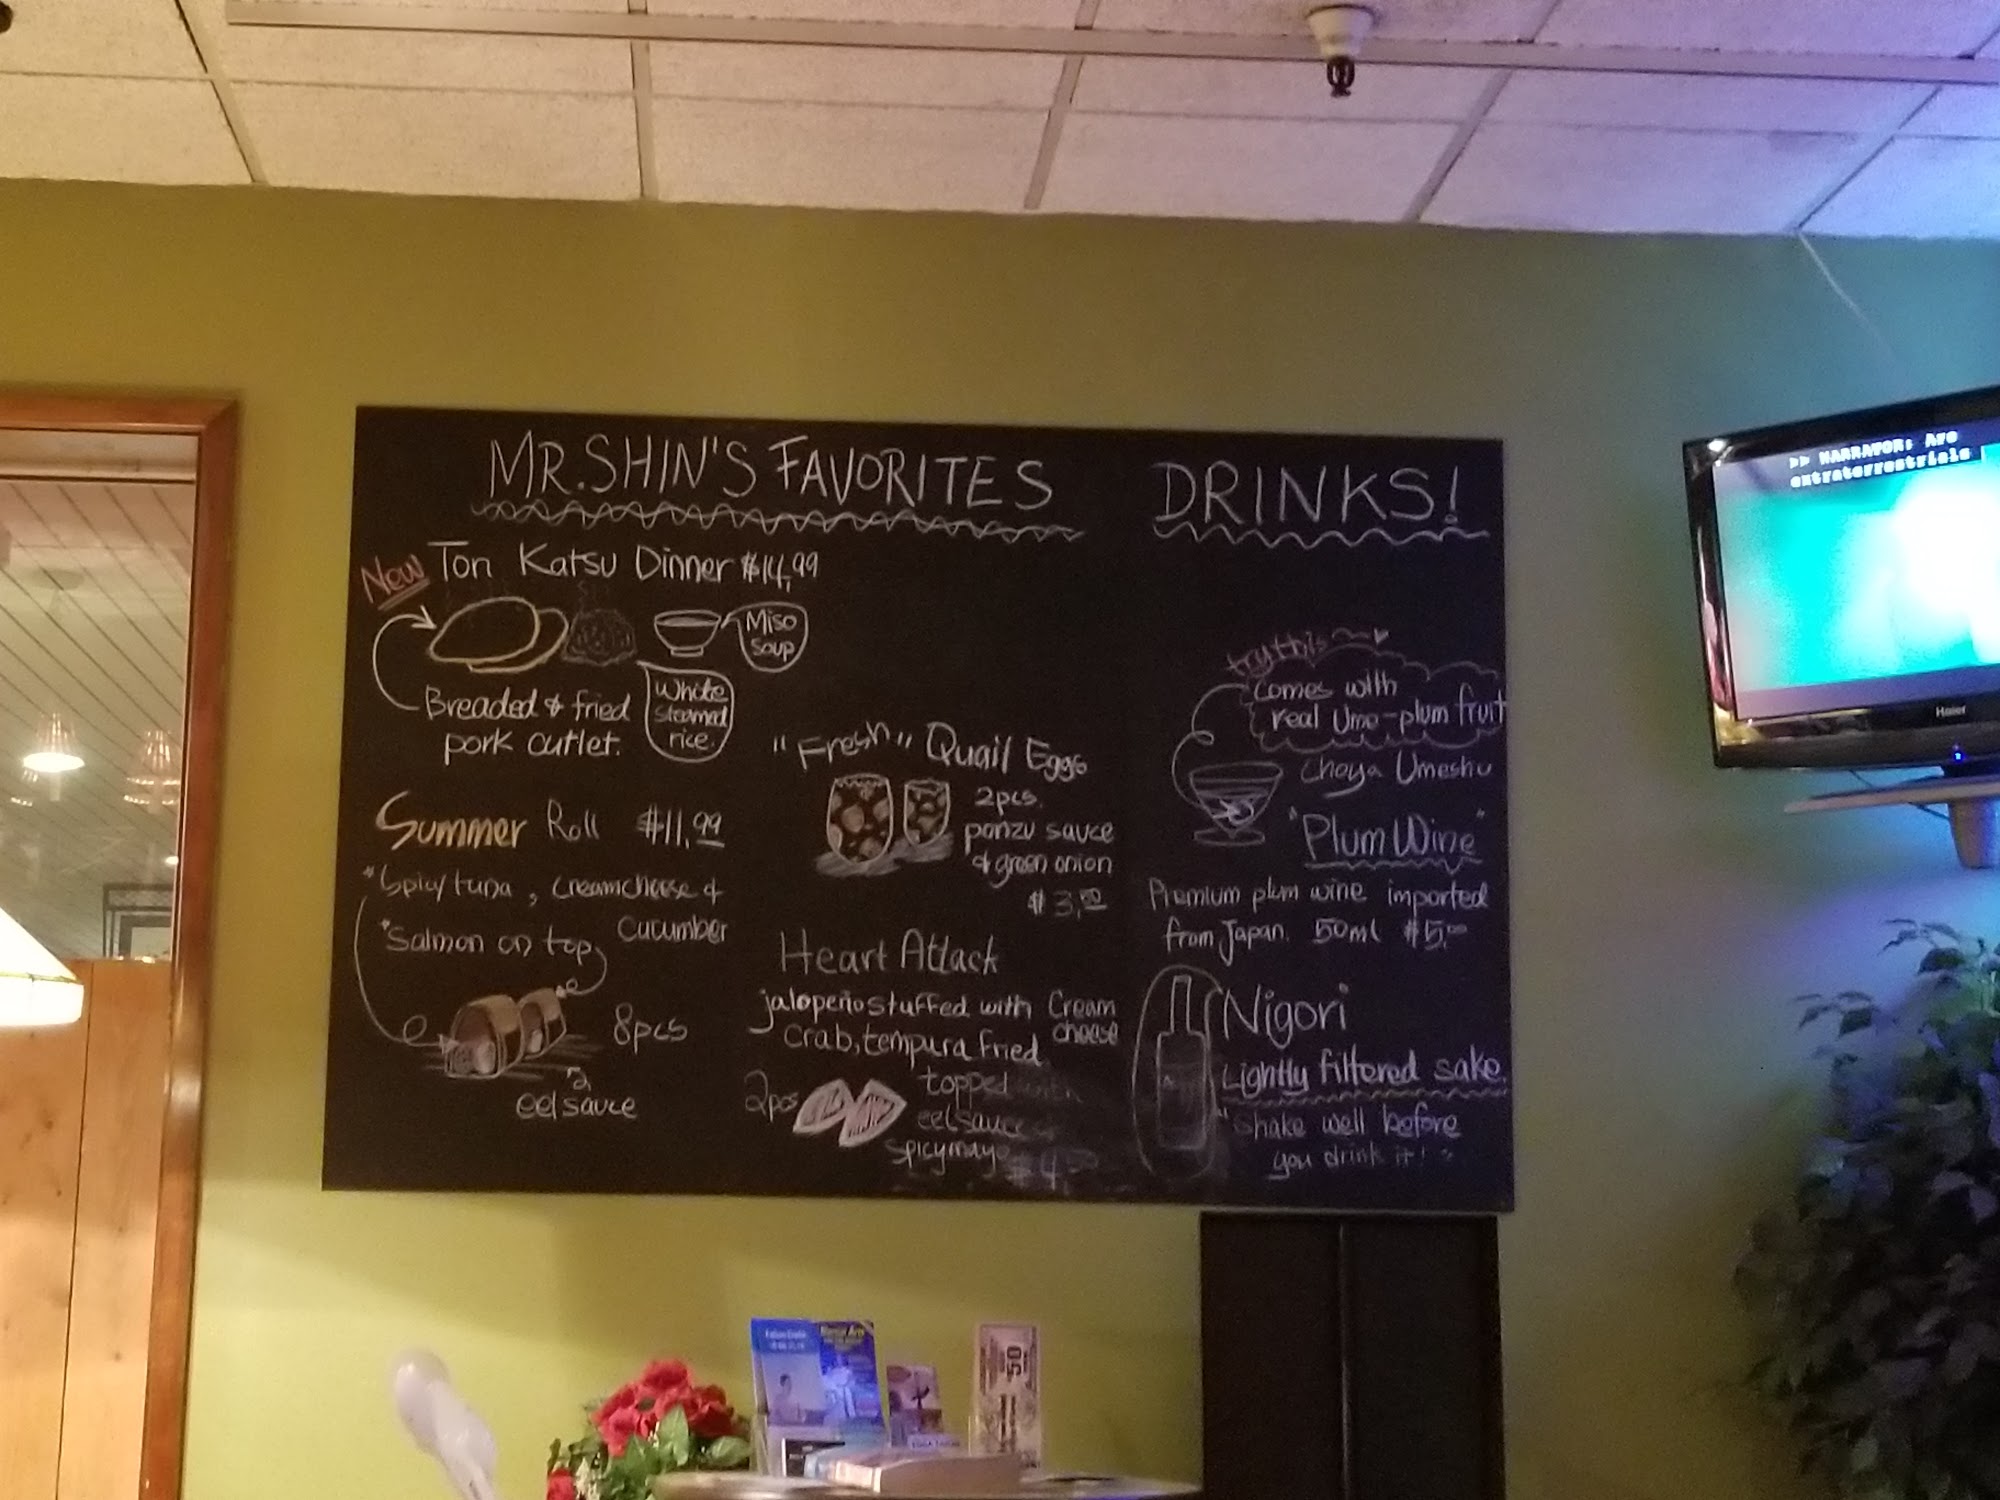 MR.SHIN'S FAVORITES
New Ton Katsu Dinner $14.99
Miso
Soup
Breaded & fried
pork cutlet.
White
steamed
rice.
Summer Roll $11.99
*Spicy tuna, creamcheese &
cucumber
*Salmon on top
8pcs
eel sauce
"Fresh" Quail Eggs
2pcs.
ponzu sauce
& green onion
$3.50
Heart Attack
jalapeño stuffed with cream
cheese
crab, tempura fried
2pcs
topped with
eel sauce
spicymayo
DRINKS!
try this
comes with
real Ume-plum fruit
Choya Umeshu
"Plum Wine"
Premium plum wine imported
from Japan. 50ml $5.00
Nigori
Lightly filtered sake.
"Shake well before
you drink it!"
>> NARRATOR: Are
extraterrestrials
Haier
50